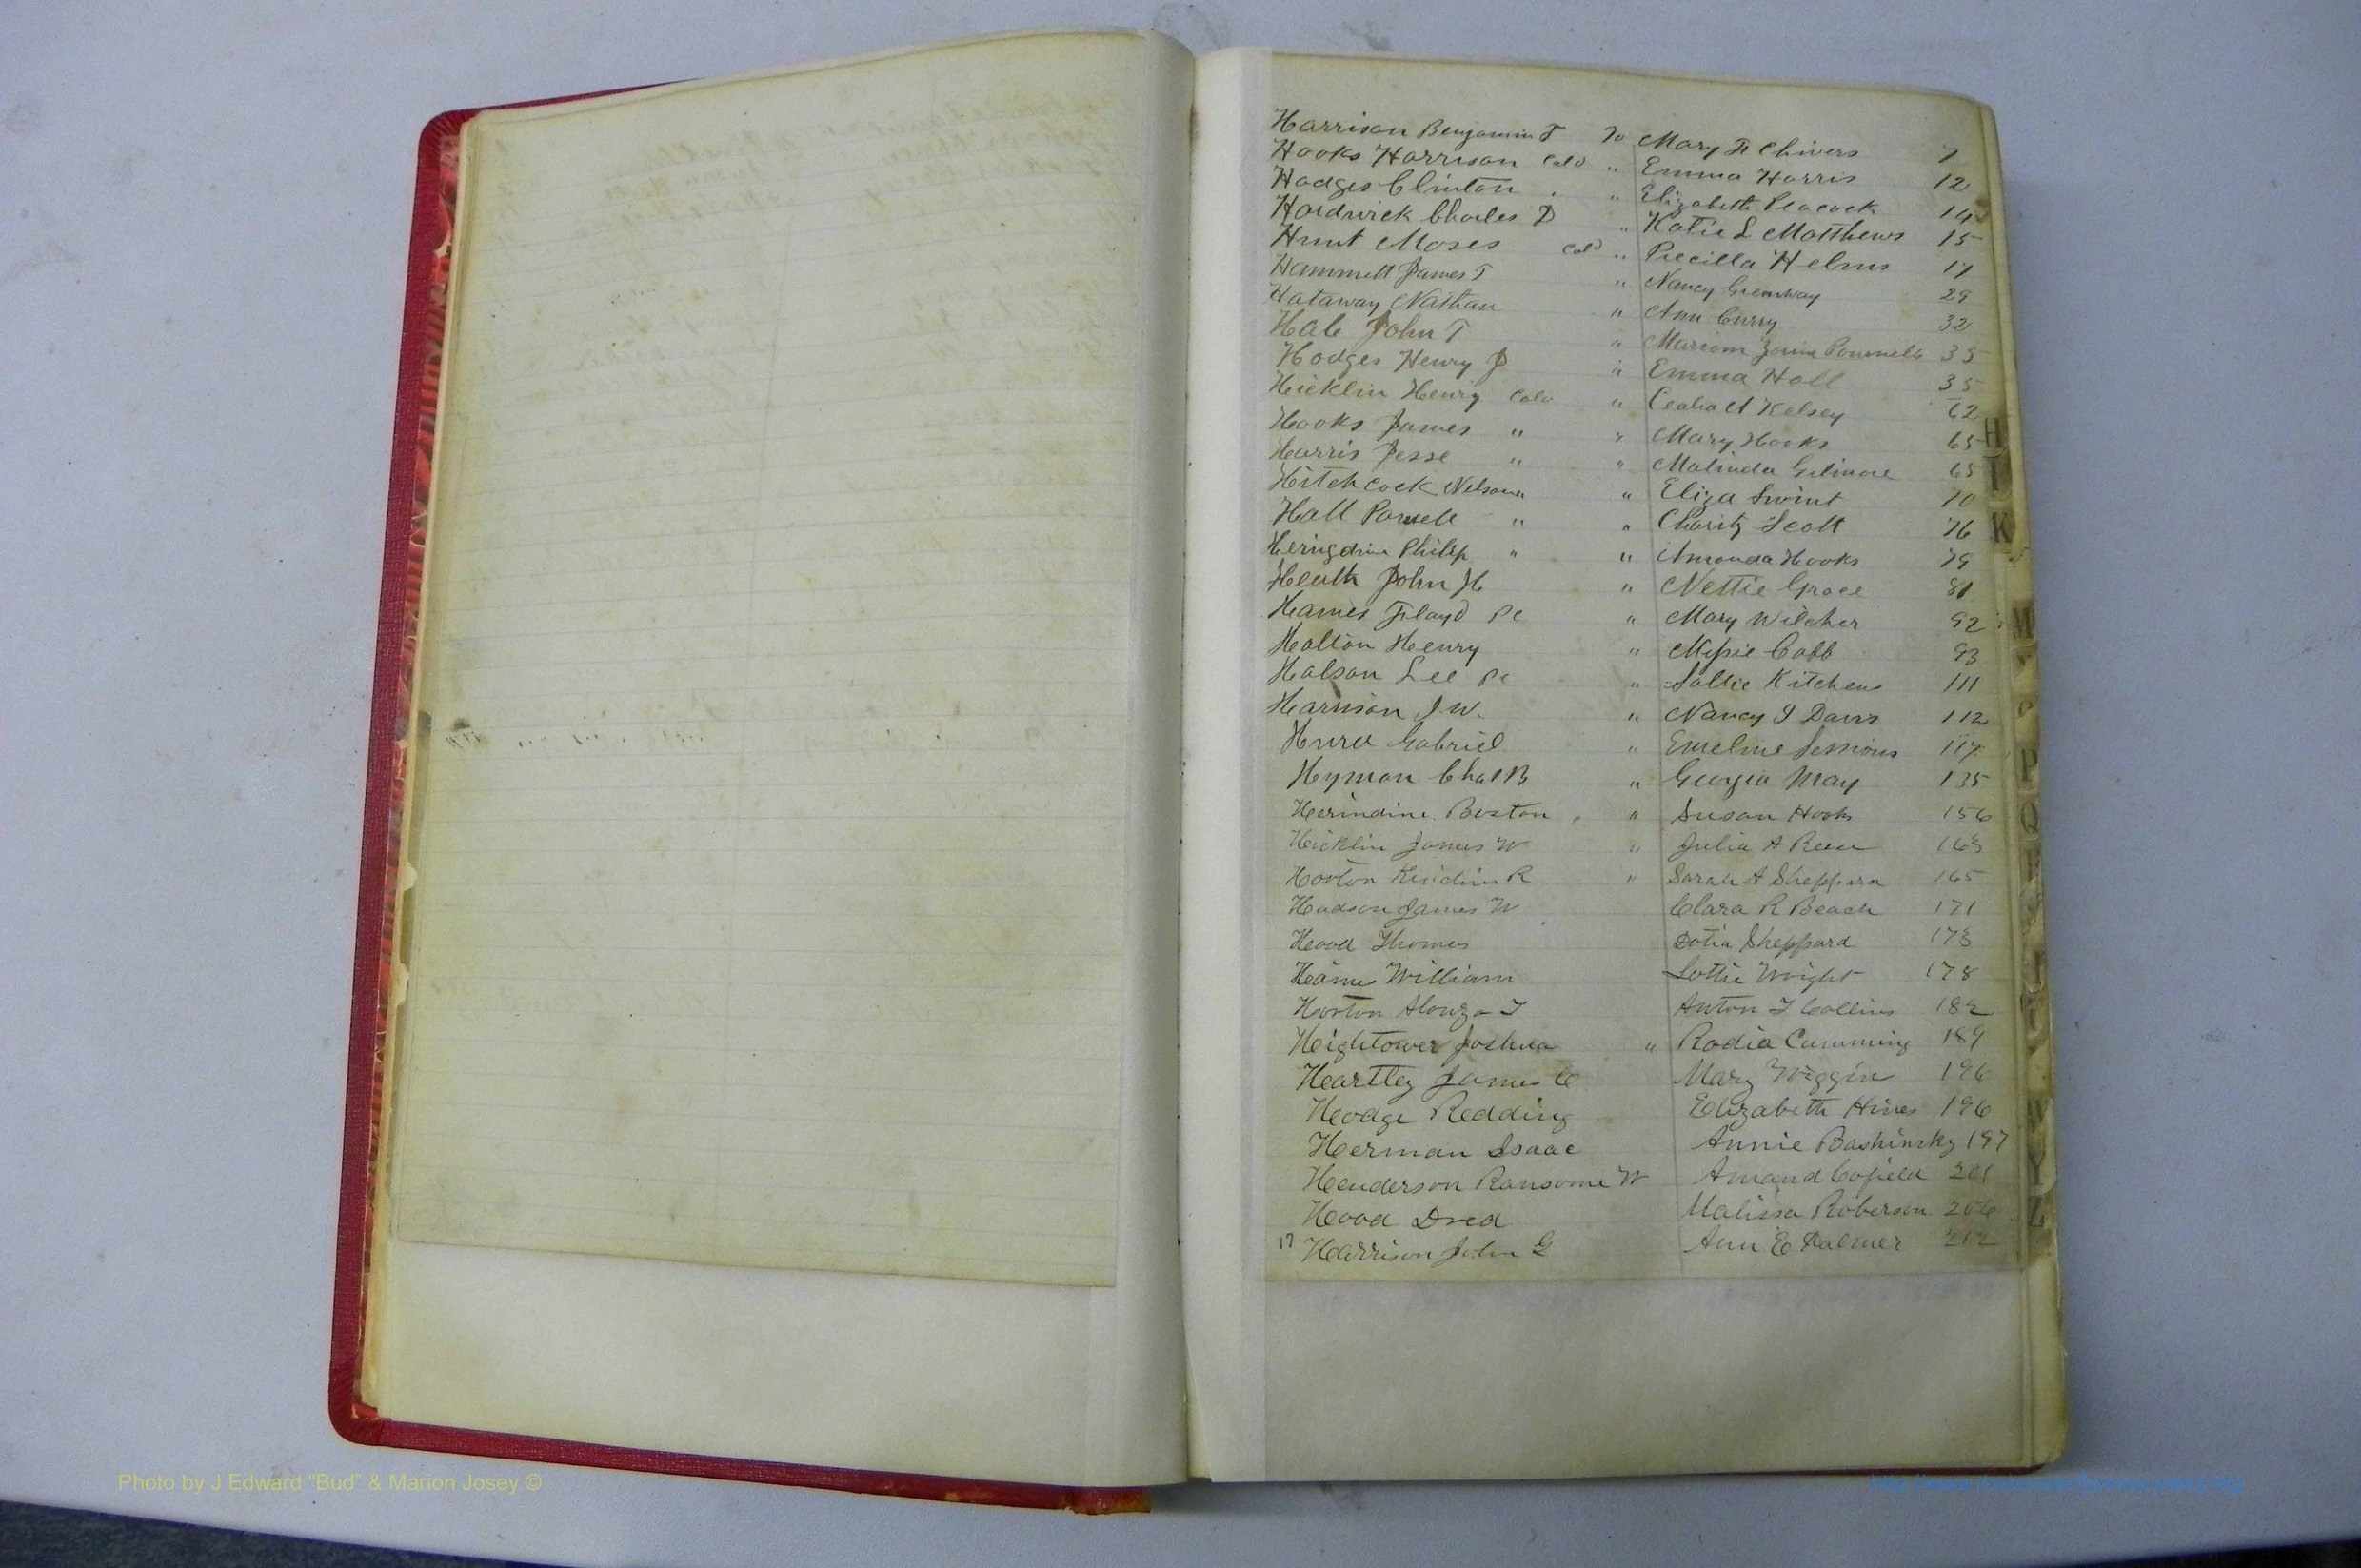 Harrison Benjamin T To Mary F Chivers 7
Hooks Harrison Cold " Emma Harris 12
Hodges Clinton " Elizabeth Peacock 14
Hardwick Charles D " Katie L Matthews 15
Hunt Moses Cold " Precilla Helms 17
Hammett James T " Nancy Greenway 29
Hataway Nathan " Ann Curry 32
Hale John T " Marrom 35
Hodges Henry J " Emma Hall 35
Hicklin Henry Cold " Kelsey 62
Hooks James " " Mary Hooks 65
Harris Jesse " " Malinda Gilmore 65
Hitchcock Nelson " " Eliza Swint 70
Hall Powell " " Charity Scott 76
Philip " " Amanda Hooks 79
Heath John H " Nettie Grace 81
Hames Floyd Pc " Mary Wilcher 92
Holton Henry " Missie Cobb 93
Holson Lee Pc " Sallie Kitchens 111
Harrison J.W. " Nancy J Davis 112
Hurd Gabriel " Emeline Sessions 117
Hyman Chas B " Georgia May 135
Herindine Boston " Susan Hooks 156
Hicklin James W " Julia A 163
Horton R " Sarah A Sheppard 165
Hudson James W Clara R Beach 171
Hood Thomas Dotia Sheppard 173
William Lottie Wright 178
Horton Alonzo T Anton J Collins 182
Hightower Joshua " Rodia Cumming 189
Heartley James C Mary Wiggins 196
Hodge Redding Elizabeth Hines 196
Herman Isaac Annie Bashinsky 197
Henderson Ransome W Amand Cofield 201
Hood Dred Malissa Roberson 206
17 Harrison John G Ann E Palmer 212
H
I
K
M
P
Q
R
Y
Z
Photo by J Edward “Bud” & Marion Josey ©